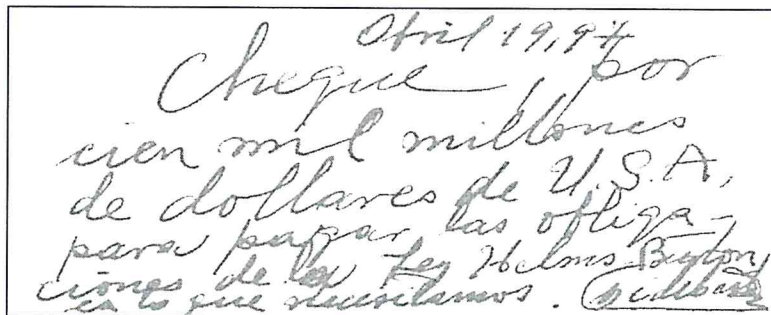 Abril 19, 97
Cheque, por
cien mil millones
de dollares de U.S.A,
para pagar las obliga-
ciones de la Ley Helms Burton,
es lo que necesitamos.